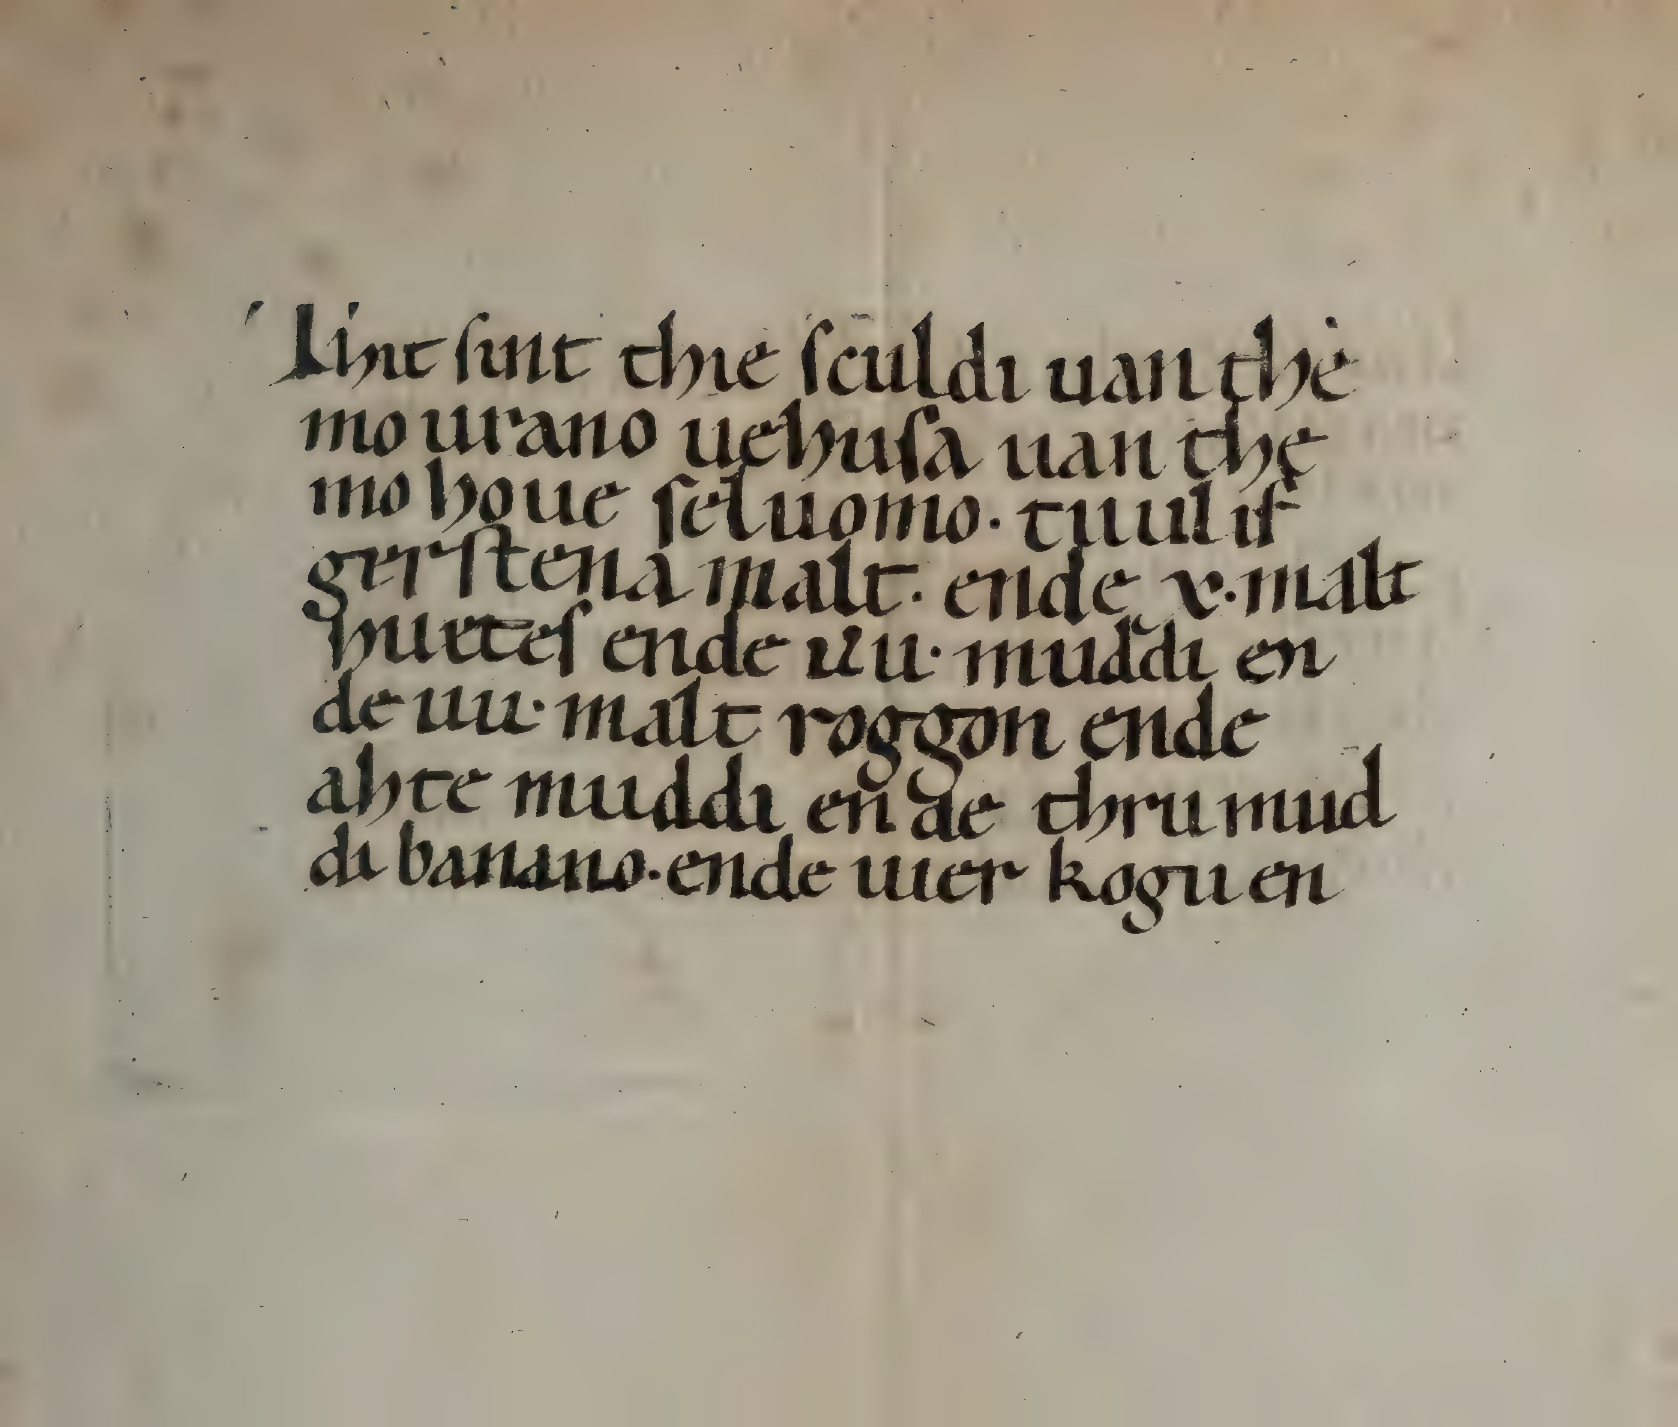 sint thie sculdi uan the
mo urano uehusa uan the
mo houe seluomo· tuulif
gerstena malt· ende x·malt
huettes ende muddi en
de malt roggon ende
ahte muddi ende thru mud
di banano·ende uier koguen